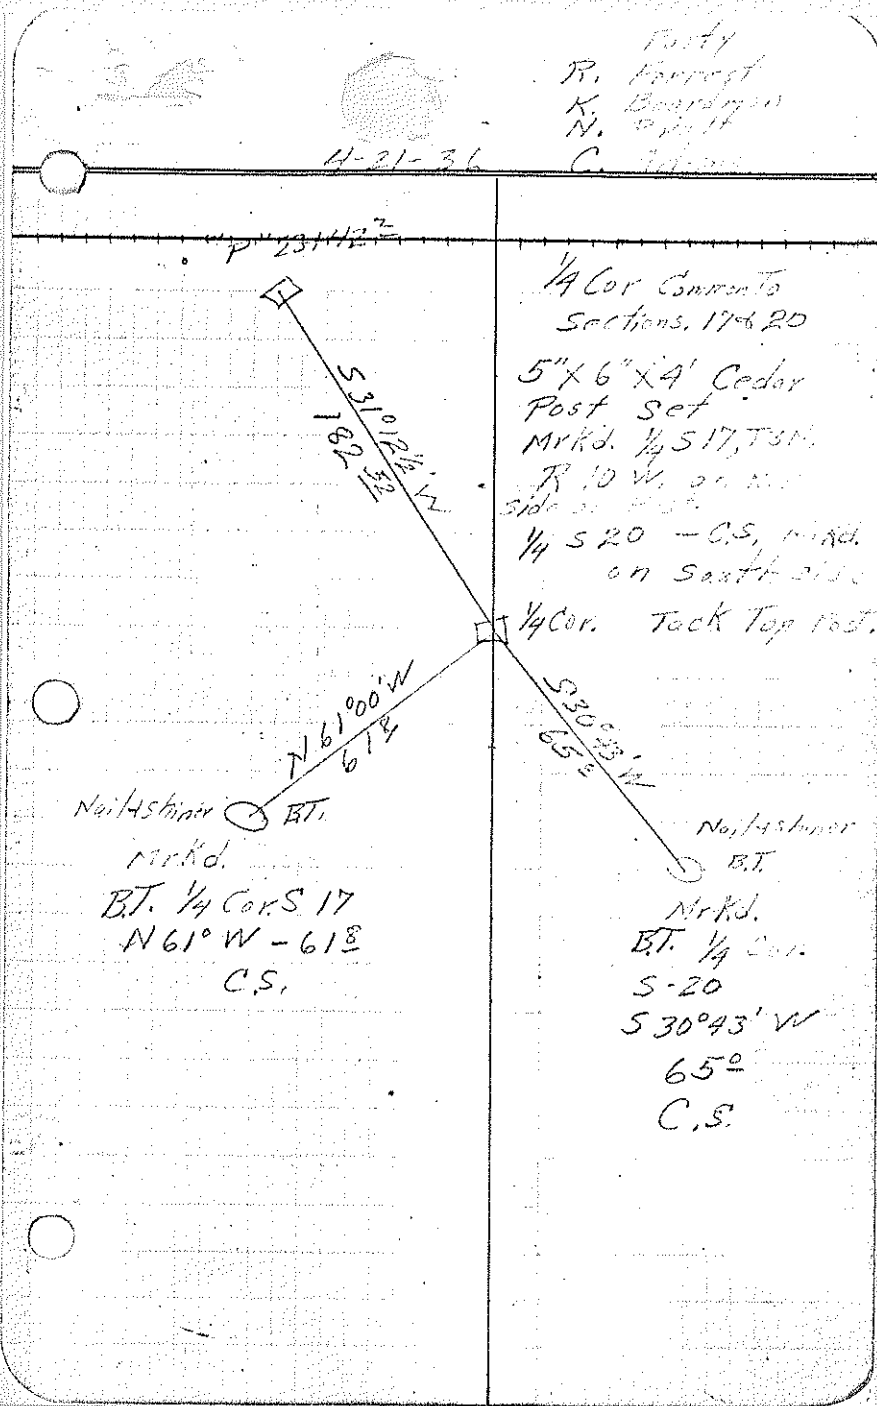 Party
R. Forrest
K. Boardman
N.
C.
4-21-36
"P" 23142²
S 31°12½' W
182 52
1/4 Cor Common To
Sections. 17 & 20
5" X 6" X 4' Cedar
Post Set
Mrkd. 1/4 S 17, T5N,
R 10 W. on
side
1/4 S 20 - C.S. mrkd.
on South side
1/4 Cor. Tack Top Post.
N 61°00' W
61 8
S 30°43' W
65 0
Nail & shiner B.T.
Mrkd.
B.T. 1/4 Cor. S 17
N 61° W - 61 8
C.S.
Nail & shiner
B.T.
Mrkd.
B.T. 1/4 Cor.
S-20
S 30°43' W
65 0
C.S.